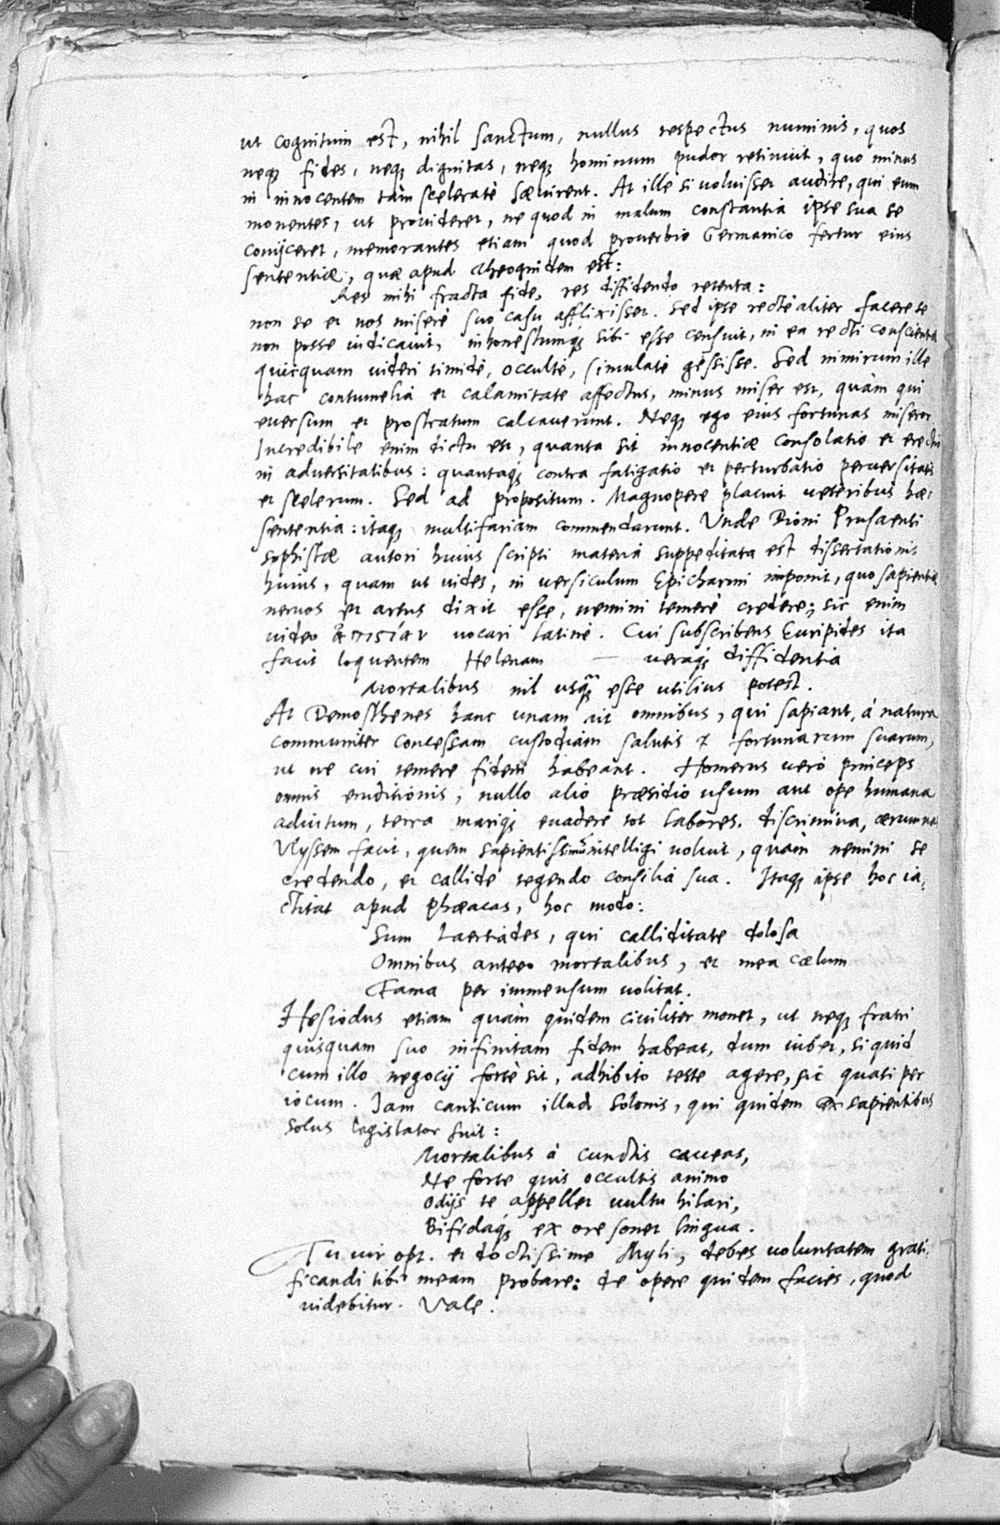 ut cognitum est, nihil sanctum, nullus respectus numinis, quos
neq; fides, neq; dignitas, neq; hominum pudor retinuit, quo minus
in innocentem tàm sceleratè sævirent. At ille si voluisset audire, qui eum
monentes, ut provideret, ne quod in malum constantia ipse sua se
conijceret, memorantes etiam quod proverbio Germanico fertur eius
sententiæ, quæ apud Theognidem est:
Res mihi fracta fide, res diffidendo retenta:
non se et nos miserè suo casu afflixisset. Sed ipse rectè aliter facere se
non posse iudicavit, inhonestumq; sibi esse censuit, in ea recti conscientia
quicquam videri timidè, occultè, simulatè gessisse. Sed nimirum ille
hac contumelia et calamitate affectus, minus miser est, quàm qui
eversum et prostratum calcaverunt. Neq; ego eius fortunas miseror
Incredibile enim dictu est, quanta sit innocentiæ consolatio et erectio
in adversitatibus: quantaq; contra fatigatio et perturbatio perversitatis
et scelerum. Sed ad propositum. Magnopere placuit veteribus hæc
sententia: itaq; multifariam commendarunt. Unde Dioni Prusaenti
sophistæ autori huius scripti materia suppeditata est dissertationis
huius, quam ut vides, in versiculum Epicharmi imponit, quo sapientiæ
nervos et artus dixit esse, nemini temerè credere; sic enim
video ἀπιστίαν vocari latinè. Cui subscribens Euripides ita
facit loquentem Helenam — veraq; diffidentia
Mortalibus nil usquam esse utilius potest.
At Demosthenes hanc unam ait omnibus, qui sapiant, à natura
communiter concessam custodiam salutis & fortunarum suarum,
ut ne cui temere fidem habeant. Homerus verò princeps
omnis eruditionis, nullo alio præsidio usum aut ope humana
adiutum, terra mariq; evadere tot labores, discrimina, ærumnas
Ulyssem facit, quem sapientissimum intelligi voluit, quàm nemini se
credendo, et callidè tegendo consilia sua. Itaq; ipse hoc ia,
ctitat apud Phæacas, hoc modo:
Sum Laertiades, qui calliditate dolosa
Omnibus anteeo mortalibus, et mea cælum
Fama per immensum volitat.
Hesiodus etiam quàm quidem civiliter monet, ut neq; fratri
quisquam suo infinitam fidem habeat, dum iubet, si quid
cum illo negocij fortè sit, adhibito teste agere, sic quasi per
iocum. Iam canticum illud Solonis, qui quidem ex sapientibus
solus legislator fuit:
Mortalibus à cunctis caveas,
Ne forte quis occultis animo
Odijs te appellet vultu hilari,
Bifidaq; ex ore sonet lingua.
Tu vir opt. et doctissime Myli, debes voluntatem grati,
ficandi tibi meam probare: de opere quidem facies, quod
videbitur. Vale.